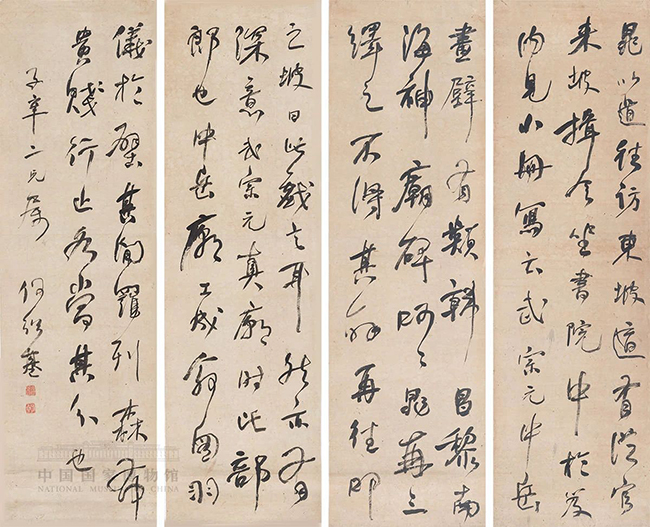 晁以道往訪東坡適有從官
來坡揖令坐書院中於
內見小冊寫云武宗元中岳
畫壁有類韓昌黎南
海神廟碑呵〻晁再三
繹之不得其解再往叩
之坡曰此戲言耳然亦有
深意武宗元真廟時比部
郎也中岳廟工成圖羽
儀於壁其間羅列森布
貴賤行止各當其分也
子莘二兄屬 何紹基
中国国家博物馆
NATIONAL MUSEUM OF CHINA